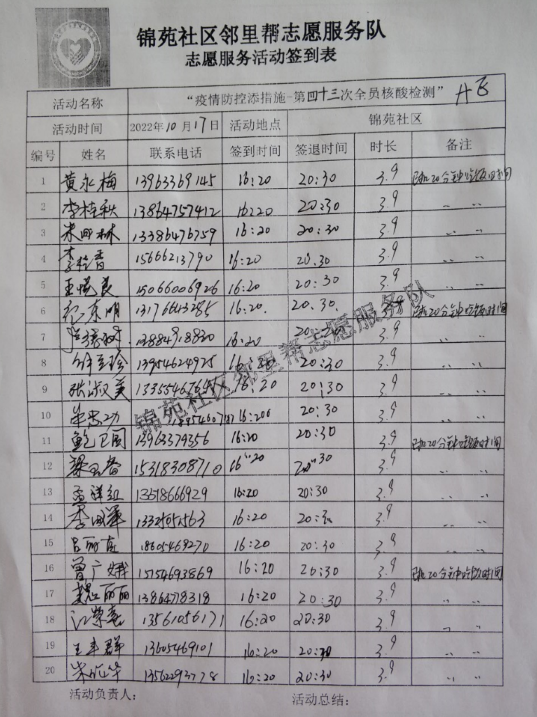 锦苑社区邻里帮志愿服务队
志愿服务活动签到表
活动名称 “疫情防控添措施-第四十三次全员核酸检测” A 区
活动时间 2022年10月17日 活动地点 锦苑社区
编号 姓名 联系电话 签到时间 签退时间 时长 备注
1 黄永梅 13963369145 16:20 20:30 3.9 已扣20分钟吃饭时间
2 李桂秋 13864757412 16:20 20:30 3.9 〃 〃
3 林 13386476759 16:20 20:30 3.9 〃 〃
4 李香 15666213790 16:20 20:30 3.9 〃 〃
5 王 15066006926 16:20 20:30 3.9 〃 〃
6 明 16:20 20:30 3.9 已扣20分钟吃饭时间
7 16:20 20:30 3.9 〃 〃
8 珍 13954624925 16:20 20:30 3.9 〃 〃
9 张淑美 16:20 20:30 3.9 〃 〃
10 功 20:30 3.9 〃 〃
11 鲍卫国 13963379356 16:20 20:30 3.9 已扣20分钟吃饭时间
12 梁 15318308710 16"20 20"30 3.9 〃 〃
13 红 13618666929 16:20 20:30 3.9 〃 〃
14 李 16:20 20:30 3.9 〃 〃
15 吕丽 18605468270 16:20 20:30 3.9 〃 〃
16 曾广 15154693869 16:20 20:30 3.9 已扣20分钟吃饭时间
17 魏丽丽 13864778318 16:20 20:30 3.9 〃 〃
18 江 13561056171 16:20 20:30 3.9 〃 〃
19 王群 13605469101 16:20 20:30 3.9 〃 〃
20 华 16:20 20:30 3.9 〃 〃
活动负责人： 活动总结：
锦苑社区邻里帮志愿服务队